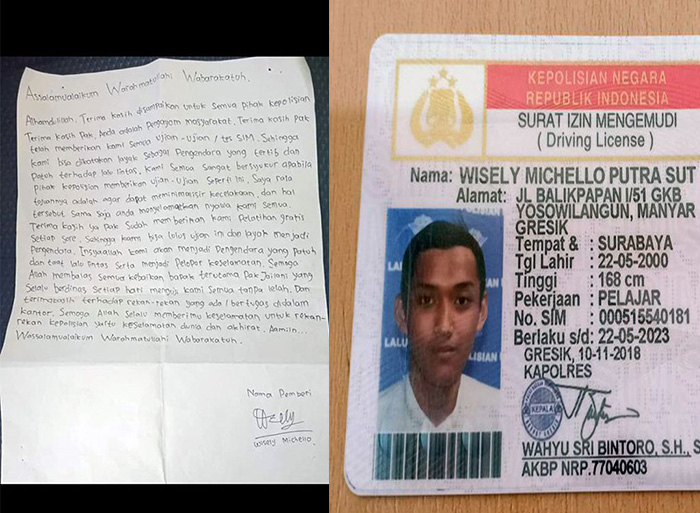 Assalamualaikum Warahmatullahi Wabarakatuh.
Alhamdulillah. Terima kasih disampaikan untuk semua pihak kepolisian
Terima kasih Pak, beda adalah Pengayom masyarakat. Terima kasih Pak
telah memberikan kami semua ujian-ujian / tes SIM. Sehingga
kami bisa dikatakan layak sebagai Pengendara yang tertib dan
Patuh terhadap lalu lintas. kami semua sangat bersyukur apabila
pihak kepolisian memberikan ujian-ujian seperti ini. Saya rasa
tujuannya adalah agar dapat meminimalisir kecelakaan, dan hal
tersebut sama saja anda menyelamatkan nyawa kami semua.
Terima kasih ya pak sudah memberikan kami Pelatihan gratis
setiap sore. Sehingga kami bisa lolos ujian ini dan layak menjadi
Pengendara. Insyaallah kami akan menjadi Pengendara yang Patuh
dan taat lalu lintas serta menjadi Pelopor keselamatan. Semoga
Allah membalas semua kebaikan bapak terutama Pak Jailani yang
selalu berdinas setiap hari menguji kami semua tanpa lelah. Dan
terimakasih terhadap rekan-rekan yang ada / bertugas didalam
kantor. Semoga Allah selalu memberimu keselamatan untuk rekan-
rekan kepolisian yaitu keselamatan dunia dan akhirat. Aamiin...
Wassalamualaikum Warohmatullahi Wabarakatuh.
Nama Pemberi
Wisely
Wisely Michello
KEPOLISIAN NEGARA
REPUBLIK INDONESIA
SURAT IZIN MENGEMUDI
( Driving License )
Nama: WISELY MICHELLO PUTRA SUT
Alamat: JL BALIKPAPAN I/51 GKB
YOSOWILANGUN, MANYAR
GRESIK
Tempat & : SURABAYA
Tgl Lahir : 22-05-2000
Tinggi : 168 cm
Pekerjaan : PELAJAR
No. SIM : 000515540181
Berlaku s/d: 22-05-2023
GRESIK, 10-11-2018
KAPOLRES
KEPALA
WAHYU SRI BINTORO, S.H., S
AKBP NRP.77040603